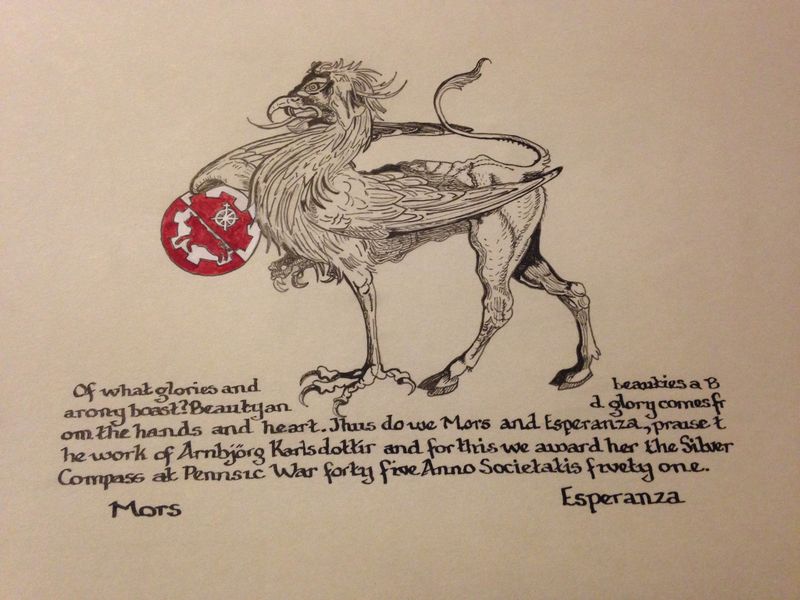 Of what glories and beauties a B
arony boast? Beauty an d glory comes fr
om the hands and heart. Thus do we Mors and Esperanza, praise t
he work of Arnbjörg Karlsdottir and for this we award her the Silver
Compass at Pennsic War forty five Anno Societatis fivety one.
Mors Esperanza